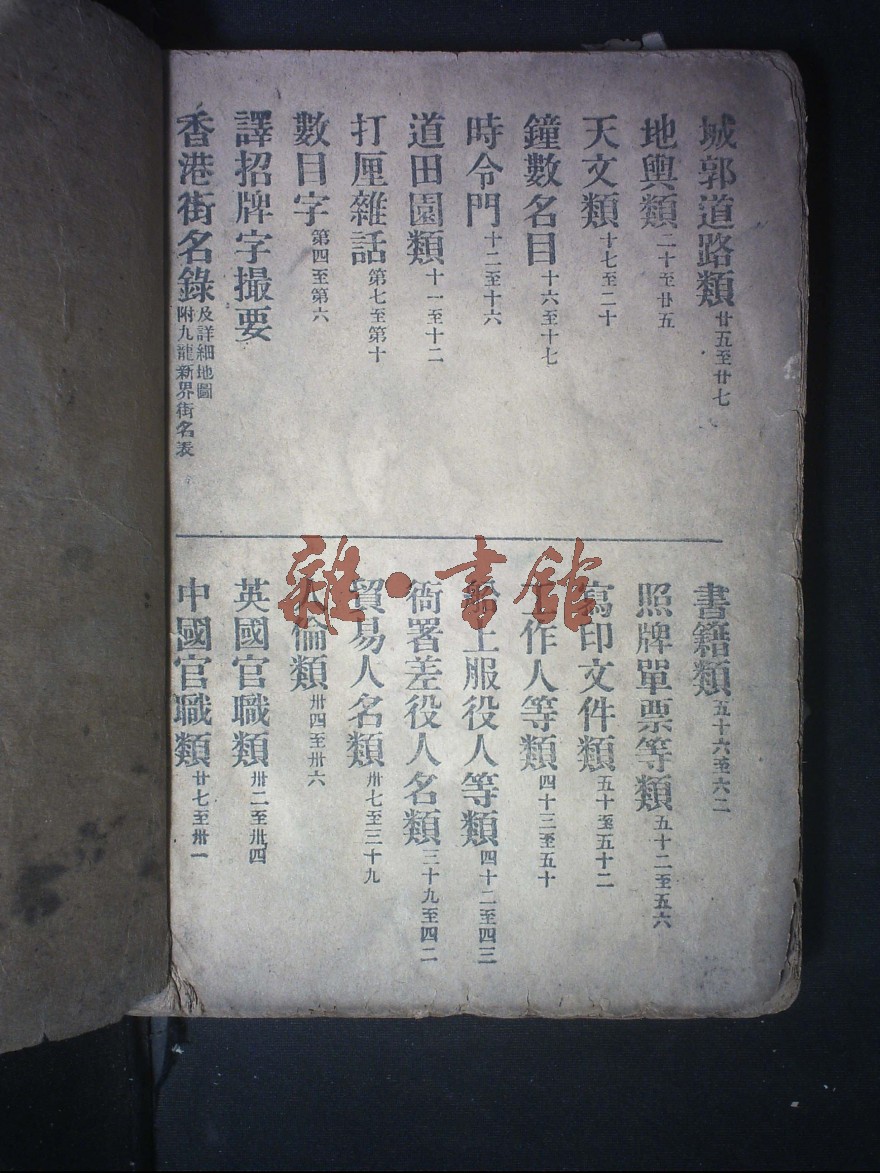 香港街名錄 及詳細地圖 附九龍新界街名表
譯招牌字撮要
數目字 第四至第六
打厘雜話 第七至第十
道田園類 十一至十二
時令門 十二至十六
鐘數名目 十六至十七
天文類 十七至二十
地輿類 二十至廿五
城郭道路類 廿五至廿七
中國官職類 廿七至卅一
英國官職類 卅二至卅四
人倫類 卅四至卅六
貿易人名類 卅七至三十九
衙署差役人名類 三十九至四二
上服役人等類 四十二至四三
工作人等類 四十三至五十
寫印文件類 五十至五十二
照牌單票等類 五十二至五六
書籍類 五十六至六二
雜·書館